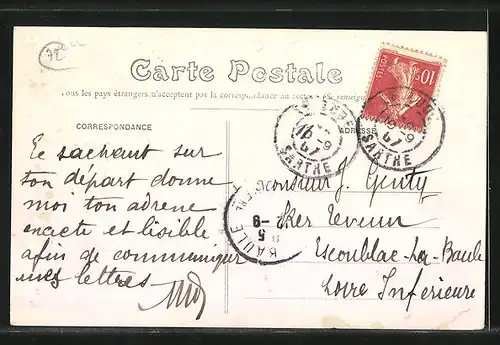 72
Carte Postale
Tous les pays étrangers n'acceptent pas la correspondance au recto
CORRESPONDANCE
ADRESSE
POSTES
10
16-9
07
SARTHE
16-9
07
SARTHE
BAULE
5
9-
Te sachant sur
ton départ donne
moi ton adresse
exacte et lisible
afin de communiquer
mes lettres
Monsieur J. Genty
Ker
Escoublac-La-Baule
Loire Inférieure